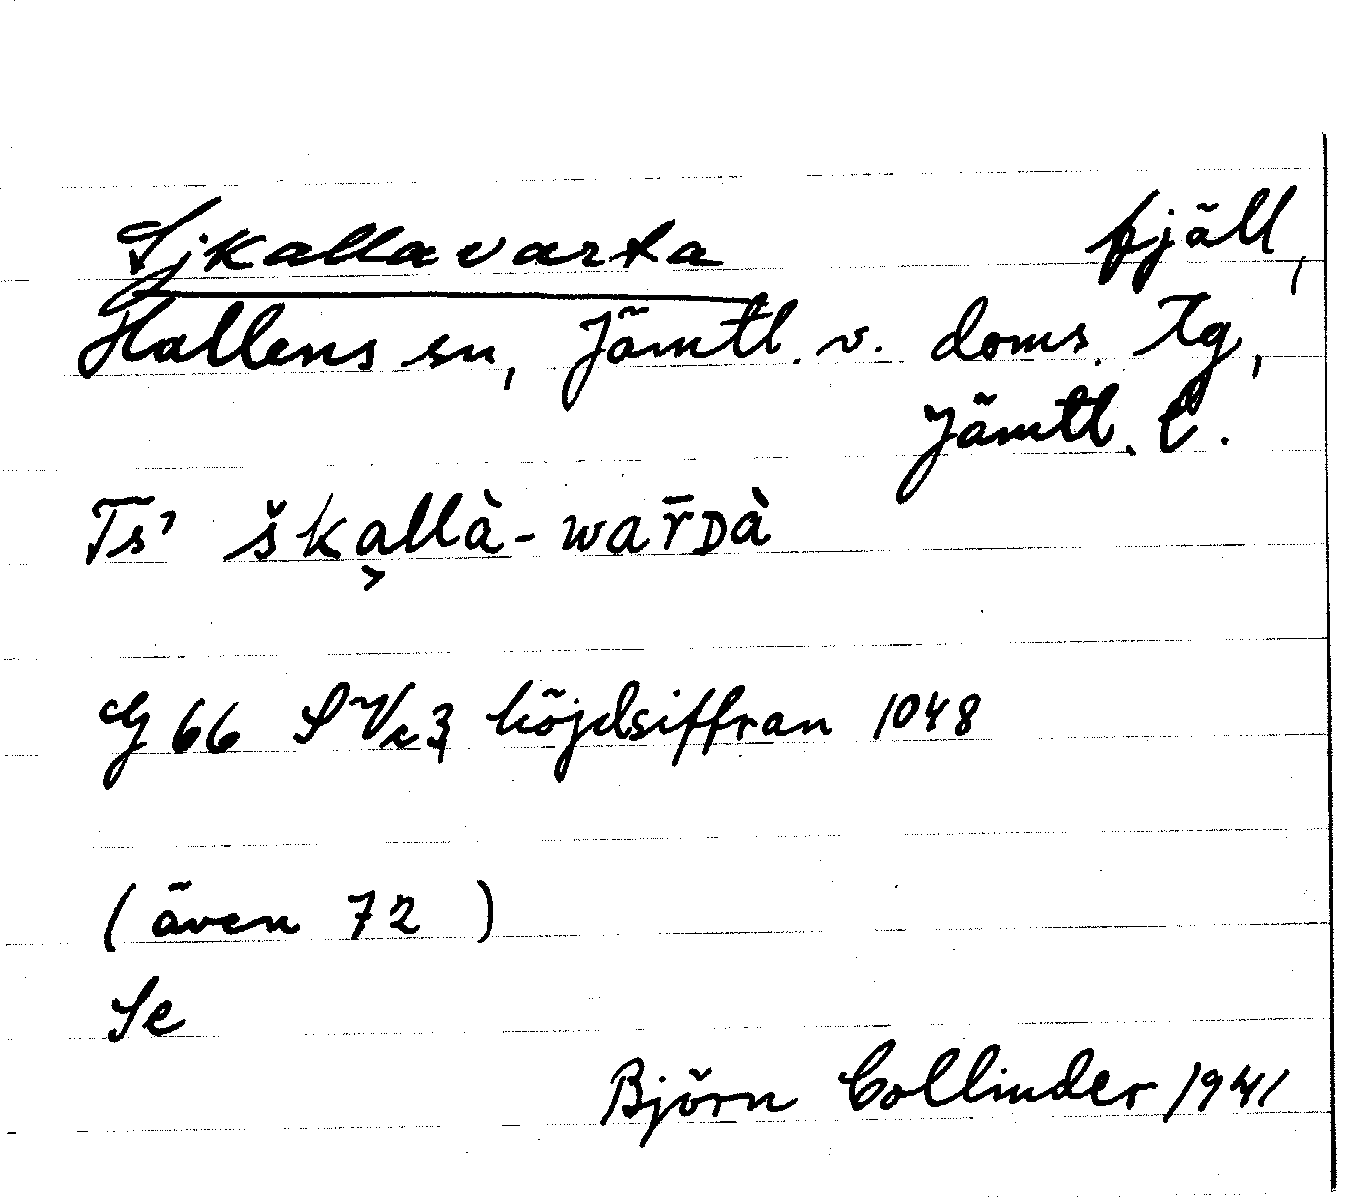 Sjkallavarta fjäll,
Hallens sn, Jämtl. v. doms. Tg,
Jämtl. l.
Ts' ška̬llà-war̄ᴅà
G 66 SV c 3 höjdsiffran 1048
(även 72 )
Se
Björn Collinder 1941